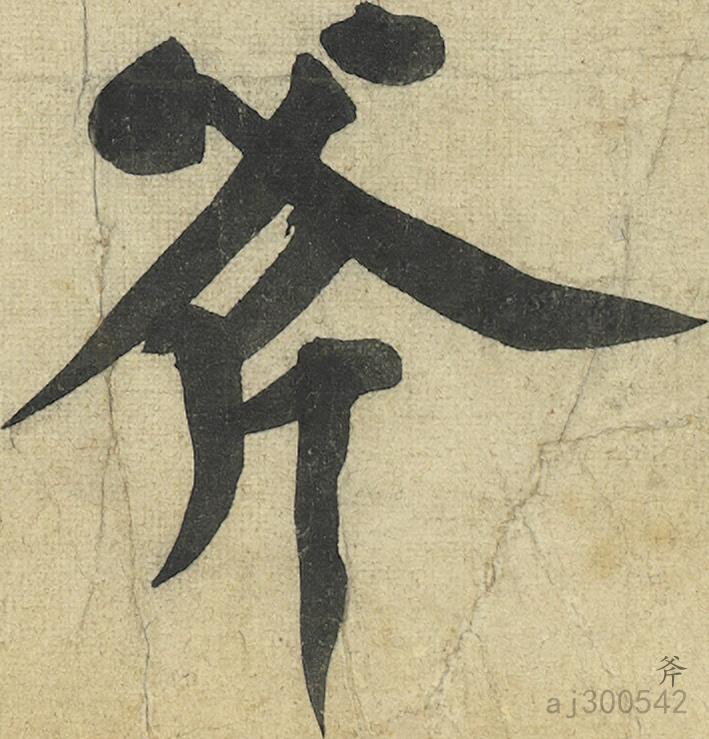 斧
斧
aj300542